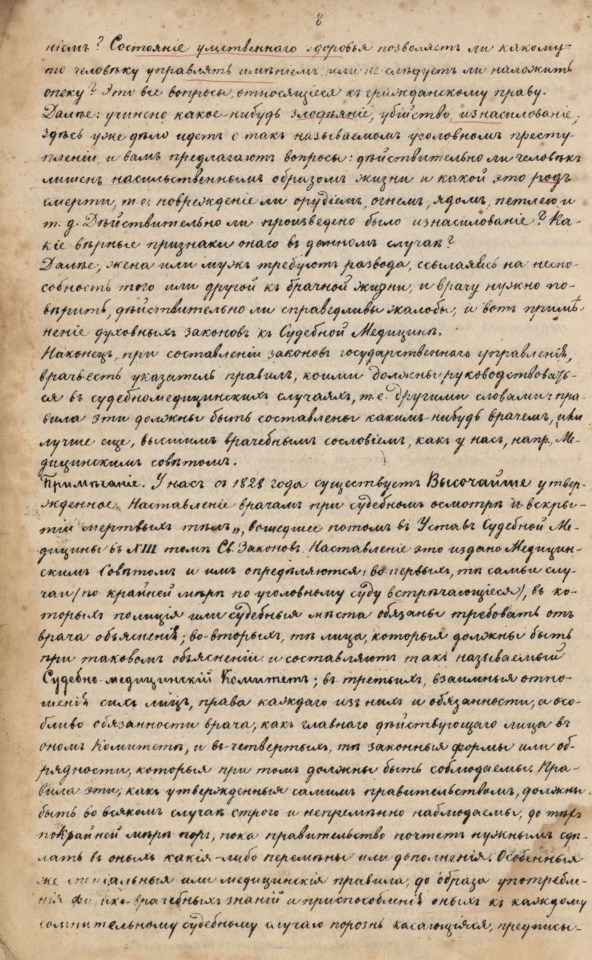 8
ніемъ? Состояніе умственнаго здоровья позволяетъ ли какому-
то человѣку управлять имѣніемъ, или не слѣдуетъ ли наложить
опеку? Эти все вопросы, относящіеся къ гражданскому праву.
Далѣе: учинено какое нибудь злодѣяніе, убійство, изнасилованіе;
здѣсь уже дѣло идетъ о такъ называемомъ уголовномъ престу-
пленіи, и вамъ предлагаютъ вопросы: дѣйствительно ли человѣкъ
лишенъ насильственнымъ образомъ жизни и какой это родъ
смерти, т. е. поврежденіе ли орудіемъ, огнемъ, ядомъ, петлею и
т. д. Дѣйствительно ли произведено было изнасилованіе? Ка-
кіе вѣрные признаки онаго въ данномъ случаѣ?
Далѣе, жена или мужъ требуютъ развода, ссылаясь на неспо-
собность того или другой къ брачной жизни, и врачу нужно по-
вѣрить, дѣйствительно ли справедливы жалобы, и вотъ примѣ-
неніе духовныхъ законовъ къ Судебной Медицинѣ.
Наконецъ, при составленіи законовъ государственнаго управленія,
врачъ есть указатель правилъ, коими должны руководствовать-
ся въ судебномедицинскихъ случаяхъ, т. е. другими словами: пра-
вила эти должны быть составлены какимъ-нибудь врачемъ, или
лучше еще, высшимъ врачебнымъ сословіемъ, какъ у насъ, напр. Ме-
дицинскимъ совѣтомъ.
Примѣчаніе. У насъ съ 1828 года существуетъ Высочайше утвер-
жденное „Наставленіе врачамъ при судебномъ осмотрѣ и вскры-
тіи мертвыхъ тѣлъ„, вошедшее потомъ въ Уставъ Судебной Ме-
дицины въ XIII томѣ Св. Законовъ. Наставленіе это издано Медицин-
скимъ Совѣтомъ и имъ опредѣляются: во первыхъ, тѣ самые слу-
чаи (по крайней мѣрѣ по уголовному суду встрѣчающіеся), въ ко-
торыхъ полиція или судебныя мѣста обязаны требовать отъ
врача объясненія; во-вторыхъ, тѣ лица, которыя должны быть
при таковомъ объясненіи и составляютъ такъ называемый
Судебно-медицинскій Комитетъ; въ третьихъ, взаимныя отно-
шенія сихъ лицъ, права каждаго изъ нихъ и обязанности, а осо-
бливо обязанности врача, какъ главнаго дѣйствующаго лица въ
ономъ Комитетѣ, и въ-четвертыхъ, тѣ законныя формы или об-
рядности, которыя при томъ должны быть соблюдаемы. Пра-
вила эти, какъ утвержденныя самимъ правительствомъ, должны
быть во всякомъ случаѣ строго и непремѣнно наблюдаемы, до тѣхъ
по крайней мѣрѣ поръ, пока правительство почтетъ нужнымъ сдѣ-
лать въ оныхъ какія-либо перемѣны или дополненія. Особенныя
же спеціальныя или медицинскія правила, до образа употребле-
нія физико-врачебныхъ знаній и приспособленія оныхъ къ каждому
сомнительному судебному случаю порознь касающіяся, предписы-